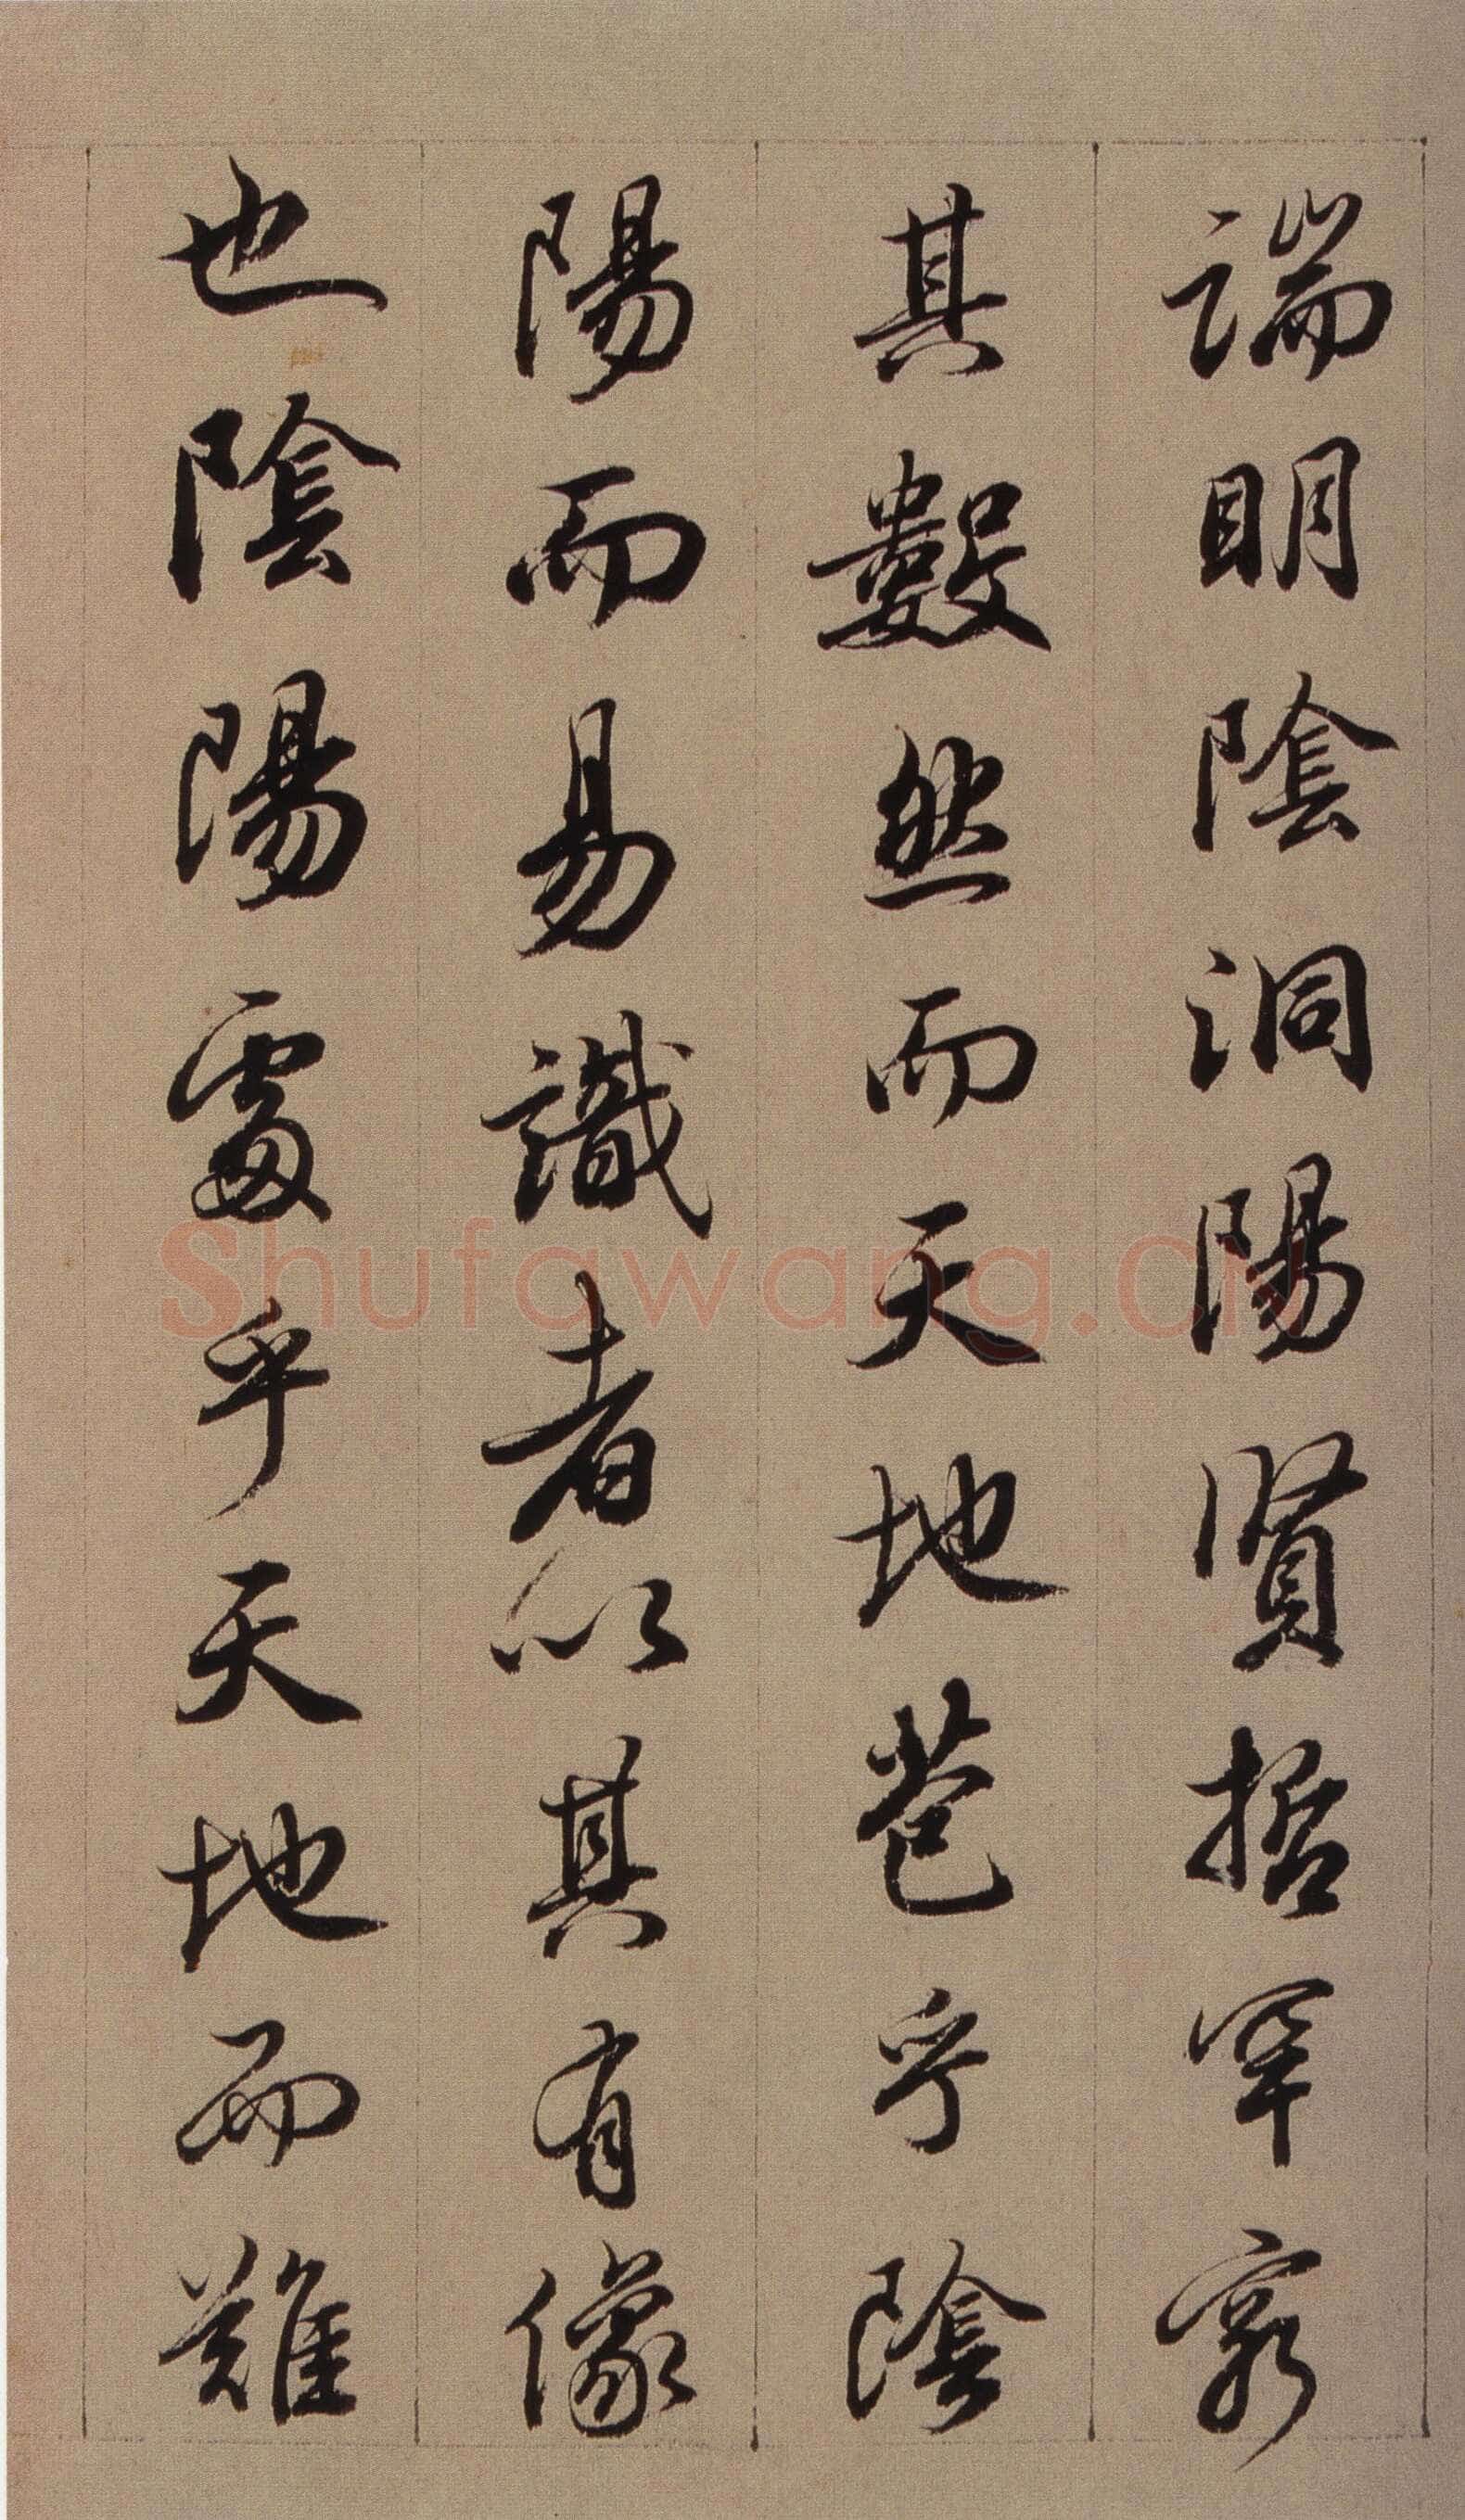 端明陰洞陽賢哲罕窮
其數然而天地苞乎陰
陽而易識者以其有像
也陰陽處乎天地而難
Shufawang.CN